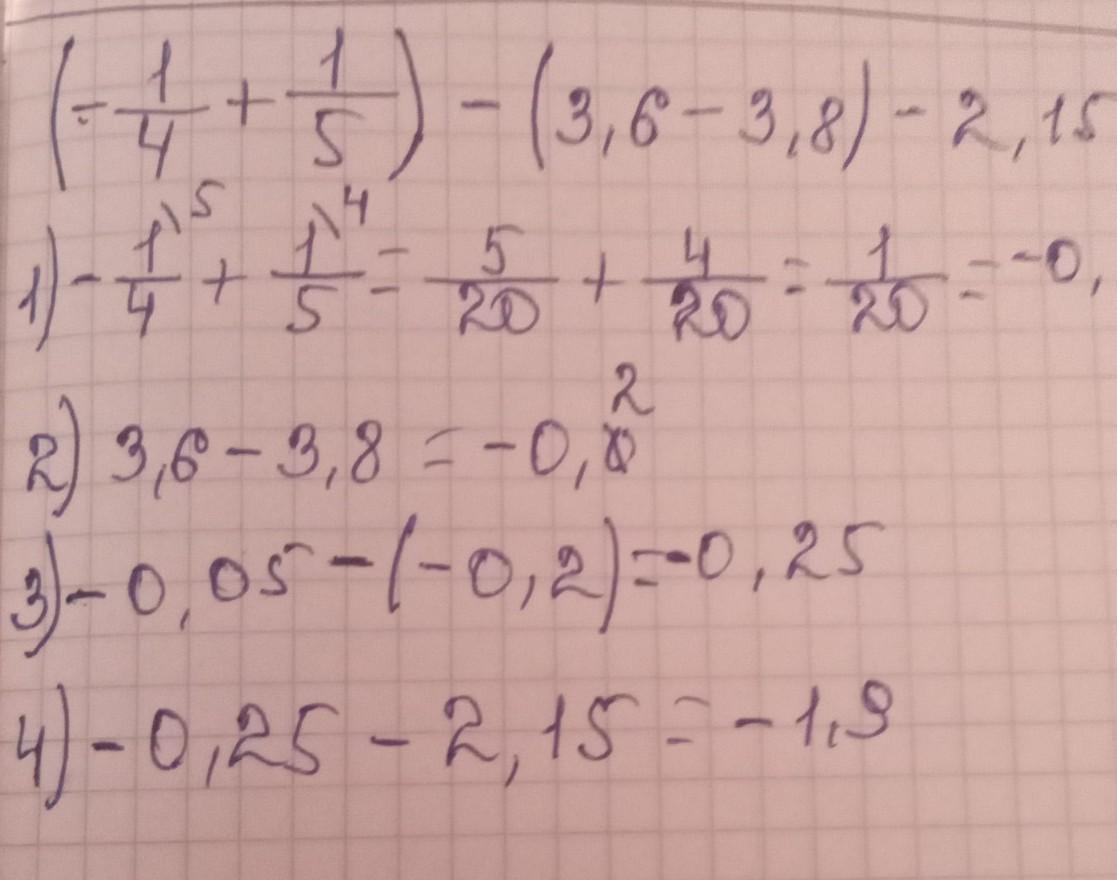 (-1/4 + 1/5) - (3,6 - 3,8) - 2,15
1) - 1\5/4 + 1\4/5 = 5/20 + 4/20 = 1/20 = -0,
2) 3,6 - 3,8 = -0,2
3) - 0,05 - (-0,2) = -0,25
4) - 0,25 - 2,15 = -1,9